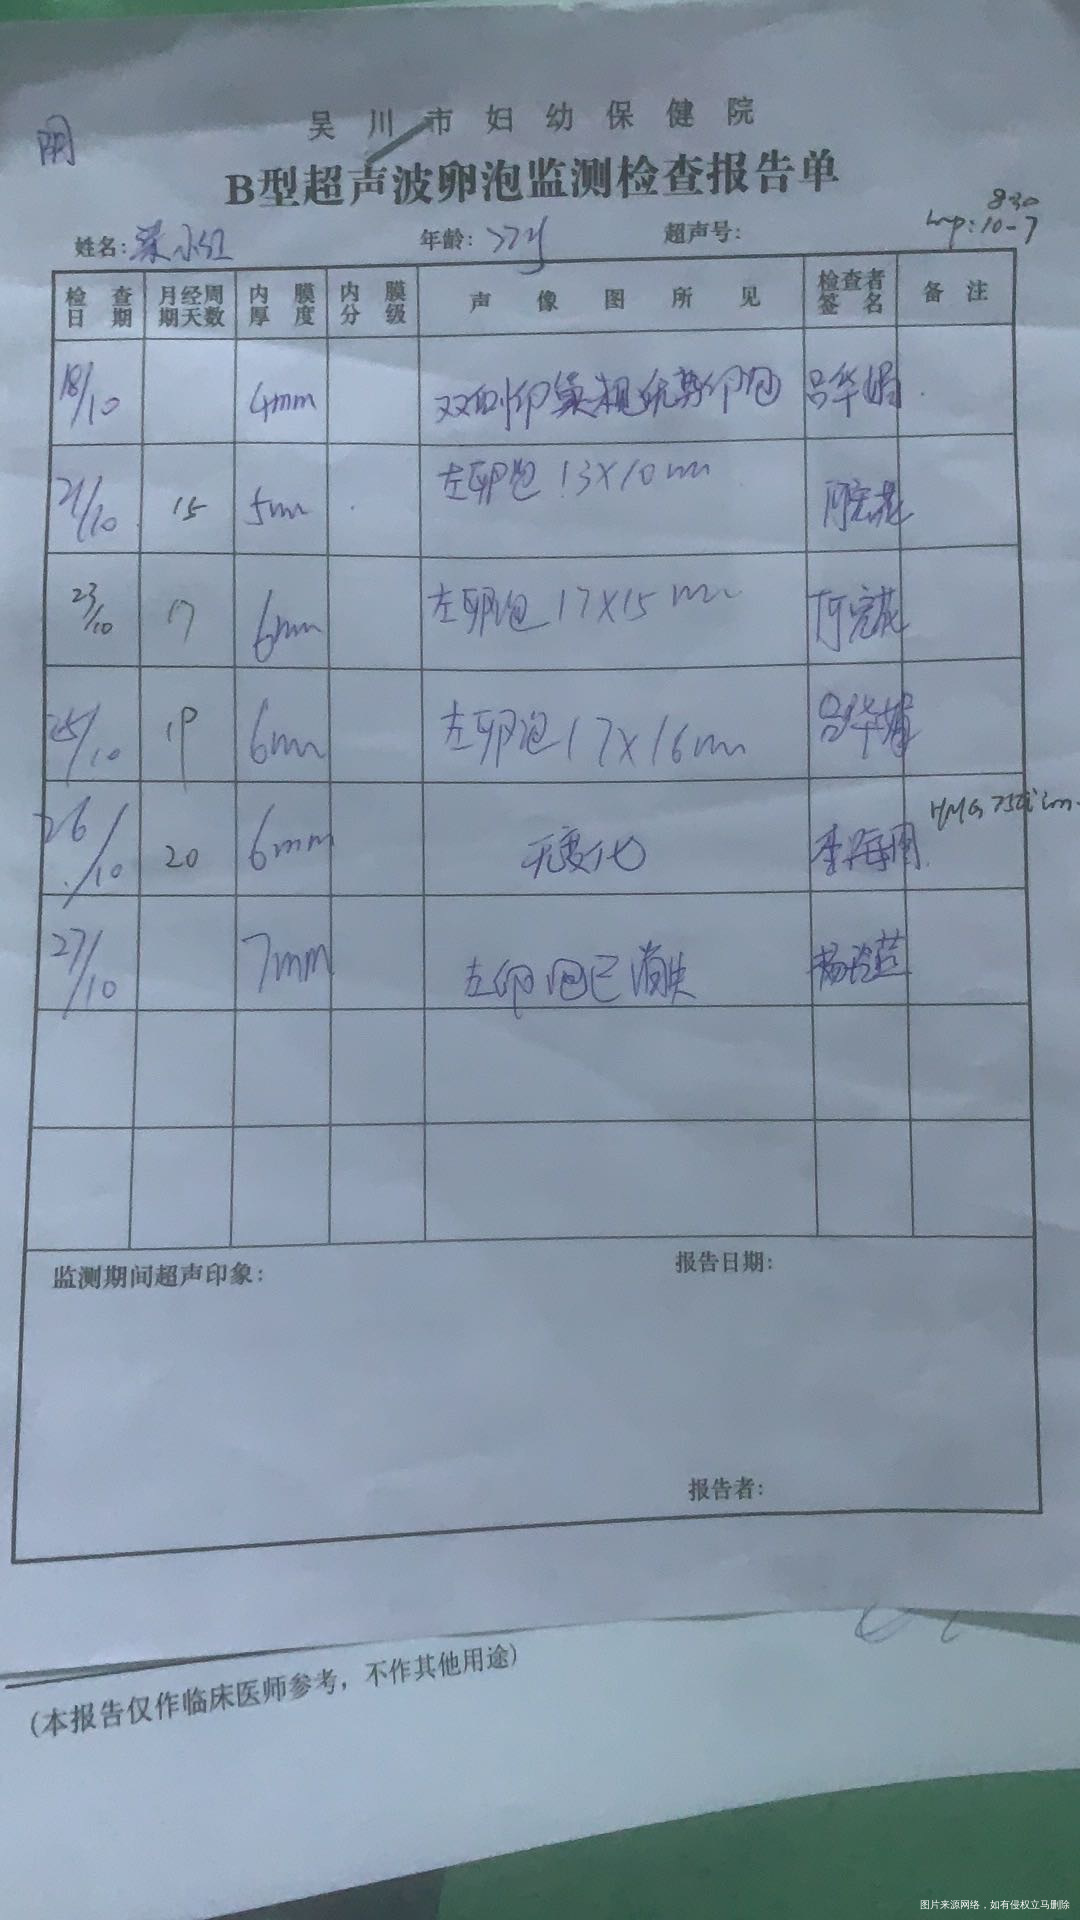 阴
吴川市妇幼保健院
B型超声波卵泡监测检查报告单
830
姓名: 年龄: 超声号: Lmp:10-7
检查日期 月经周期天数 内膜厚度 内膜分级 声像图所见 检查者签名 备注
18/10 4mm 双侧卵巢未见优势卵泡 吕华娟
21/10 15 5mm 左卵泡 13X10mm
23/10 17 6mm 左卵泡 17X15mm
25/10 19 6mm 左卵泡 17X16mm 吕华娟
26/10 20 6mm 无变化 HMG
27/10 7mm 左卵泡已消失
监测期间超声印象: 报告日期:
报告者:
(本报告仅作临床医师参考，不作其他用途)
图片来源网络，如有侵权立马删除